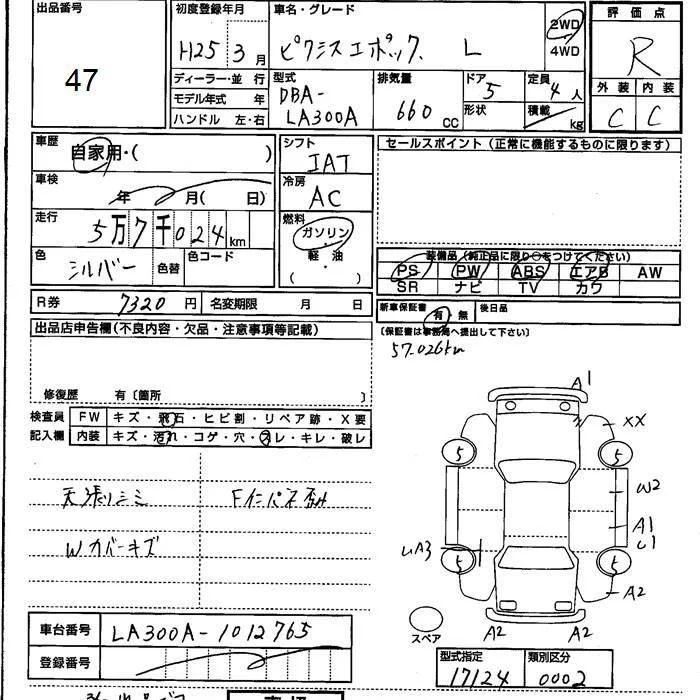 出品番号
47
初度登録年月
H25 3月
車名・グレード
ピクシスエポック L
2WD
4WD
評価点
R
外装 内装
C C
ディーラー・並行
モデル年式 年
ハンドル 左・右
型式
DBA-
LA300A
排気量
660 CC
ドア
5
形状
定員
4人
積載
kg
車歴
自家用・( )
車検
年 月( 日)
走行
5万7千024km
色
シルバー
色替
色コード
シフト
IAT
冷房
AC
燃料
ガソリン
軽油
( )
セールスポイント(正常に機能するものに限ります)
装備品(純正品に限り○をつけてください)
PS PW ABS エアB AW
SR ナビ TV カワ
R券 7320円
名変期限 月 日
新車保証書
有・無
後日品
(保証書は事務局へ提出して下さい)
57.026km
出品店申告欄(不良内容・欠品・注意事項等記載)
修復歴 有〔箇所 〕
検査員
記入欄
FW キズ・飛石・ヒビ割・リペア跡・X要
内装 キズ・汚れ・コゲ・穴・スレ・キレ・破レ
天張りシミ
Wカバーキズ
A1
XX
5
5
W2
A1
U1
UA3
5
5
A2
A2
A2
スペア
車台番号 LA300A-1012765
登録番号
型式指定
17124
類別区分
0002